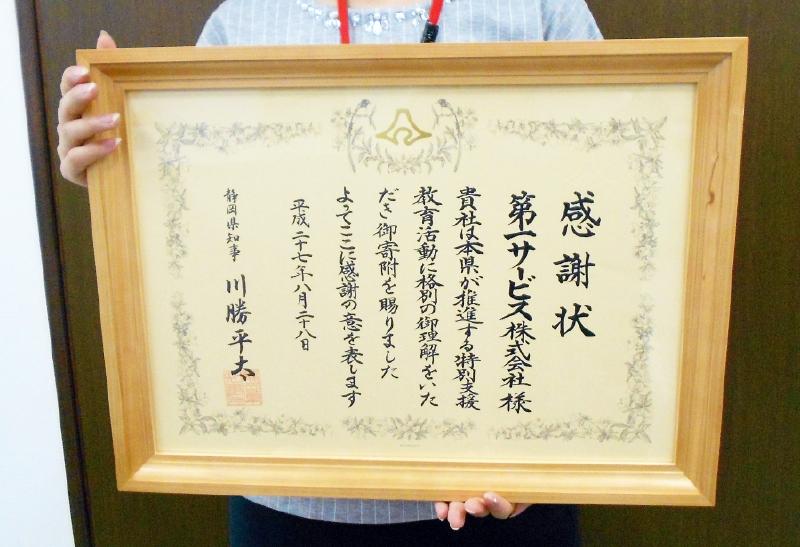 感謝状
第一サービス株式会社様
貴社は本県が推進する特別支援
教育活動に格別の御理解をいた
だき御寄附を賜りました
よってここに感謝の意を表します
平成二十七年八月二十八日
静岡県知事 川勝平太